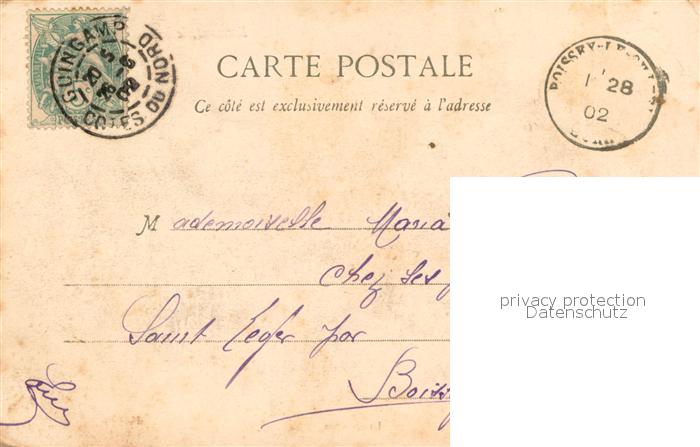 GUINGAMP
COTES DU NORD
CARTE POSTALE
Ce côté est exclusivement réservé à l'adresse
28
02
Mademoiselle Maria
chez ses
Saint Leger par
privacy protection
Datenschutz